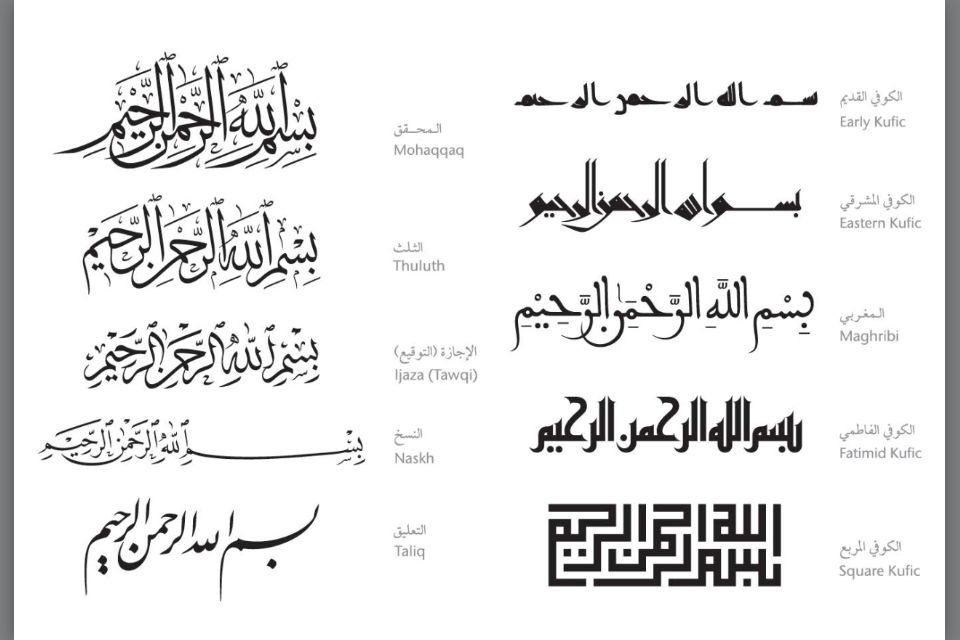 بِسْمِ اللَّهِ الرَّحْمٰنِ الرَّحِيمِ
المحقق
Mohaqqaq
بِسْمِ اللَّهِ الرَّحْمٰنِ الرَّحِيمِ
الثلث
Thuluth
بِسْمِ اللَّهِ الرَّحْمٰنِ الرَّحِيمِ
الإجازة (التوقيع)
Ijaza (Tawqi)
بِسْمِ اللَّهِ الرَّحْمٰنِ الرَّحِيمِ
النسخ
Naskh
بسم الله الرحمن الرحيم
التعليق
Taliq
بسم الله الرحمن الرحيم
الكوفي القديم
Early Kufic
بسم الله الرحمن الرحيم
الكوفي المشرقي
Eastern Kufic
بِسْمِ اللَّهِ الرَّحْمٰنِ الرَّحِيْمِ
المغربي
Maghribi
بسم الله الرحمن الرحيم
الكوفي الفاطمي
Fatimid Kufic
بسم الله الرحمن الرحيم
الكوفي المربع
Square Kufic